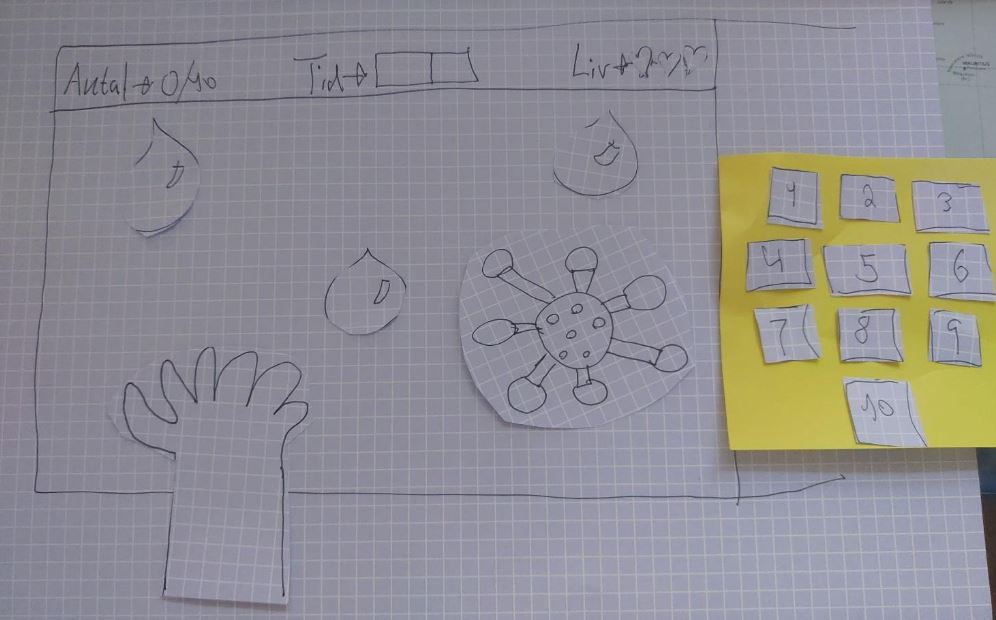 Antal → 0/10 Tid → Liv →
1 2 3
4 5 6
7 8 9
10